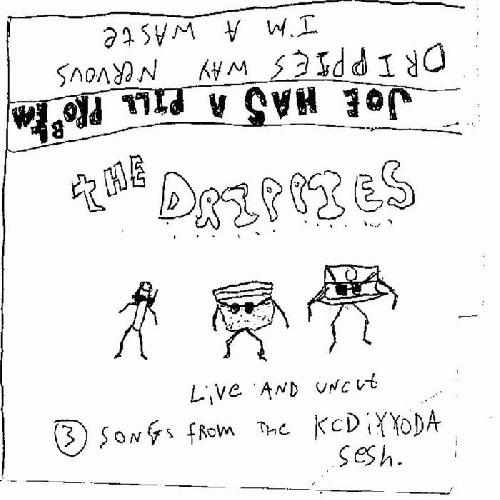 JOE HAS A PILL PROBLEM
DRIPPIES WAY NERVOUS
I.M A WASTE
THE DRIPPIES
LiVE AND UNCUt
3 SONGS FROM THE KCDiYYODA
SESH.